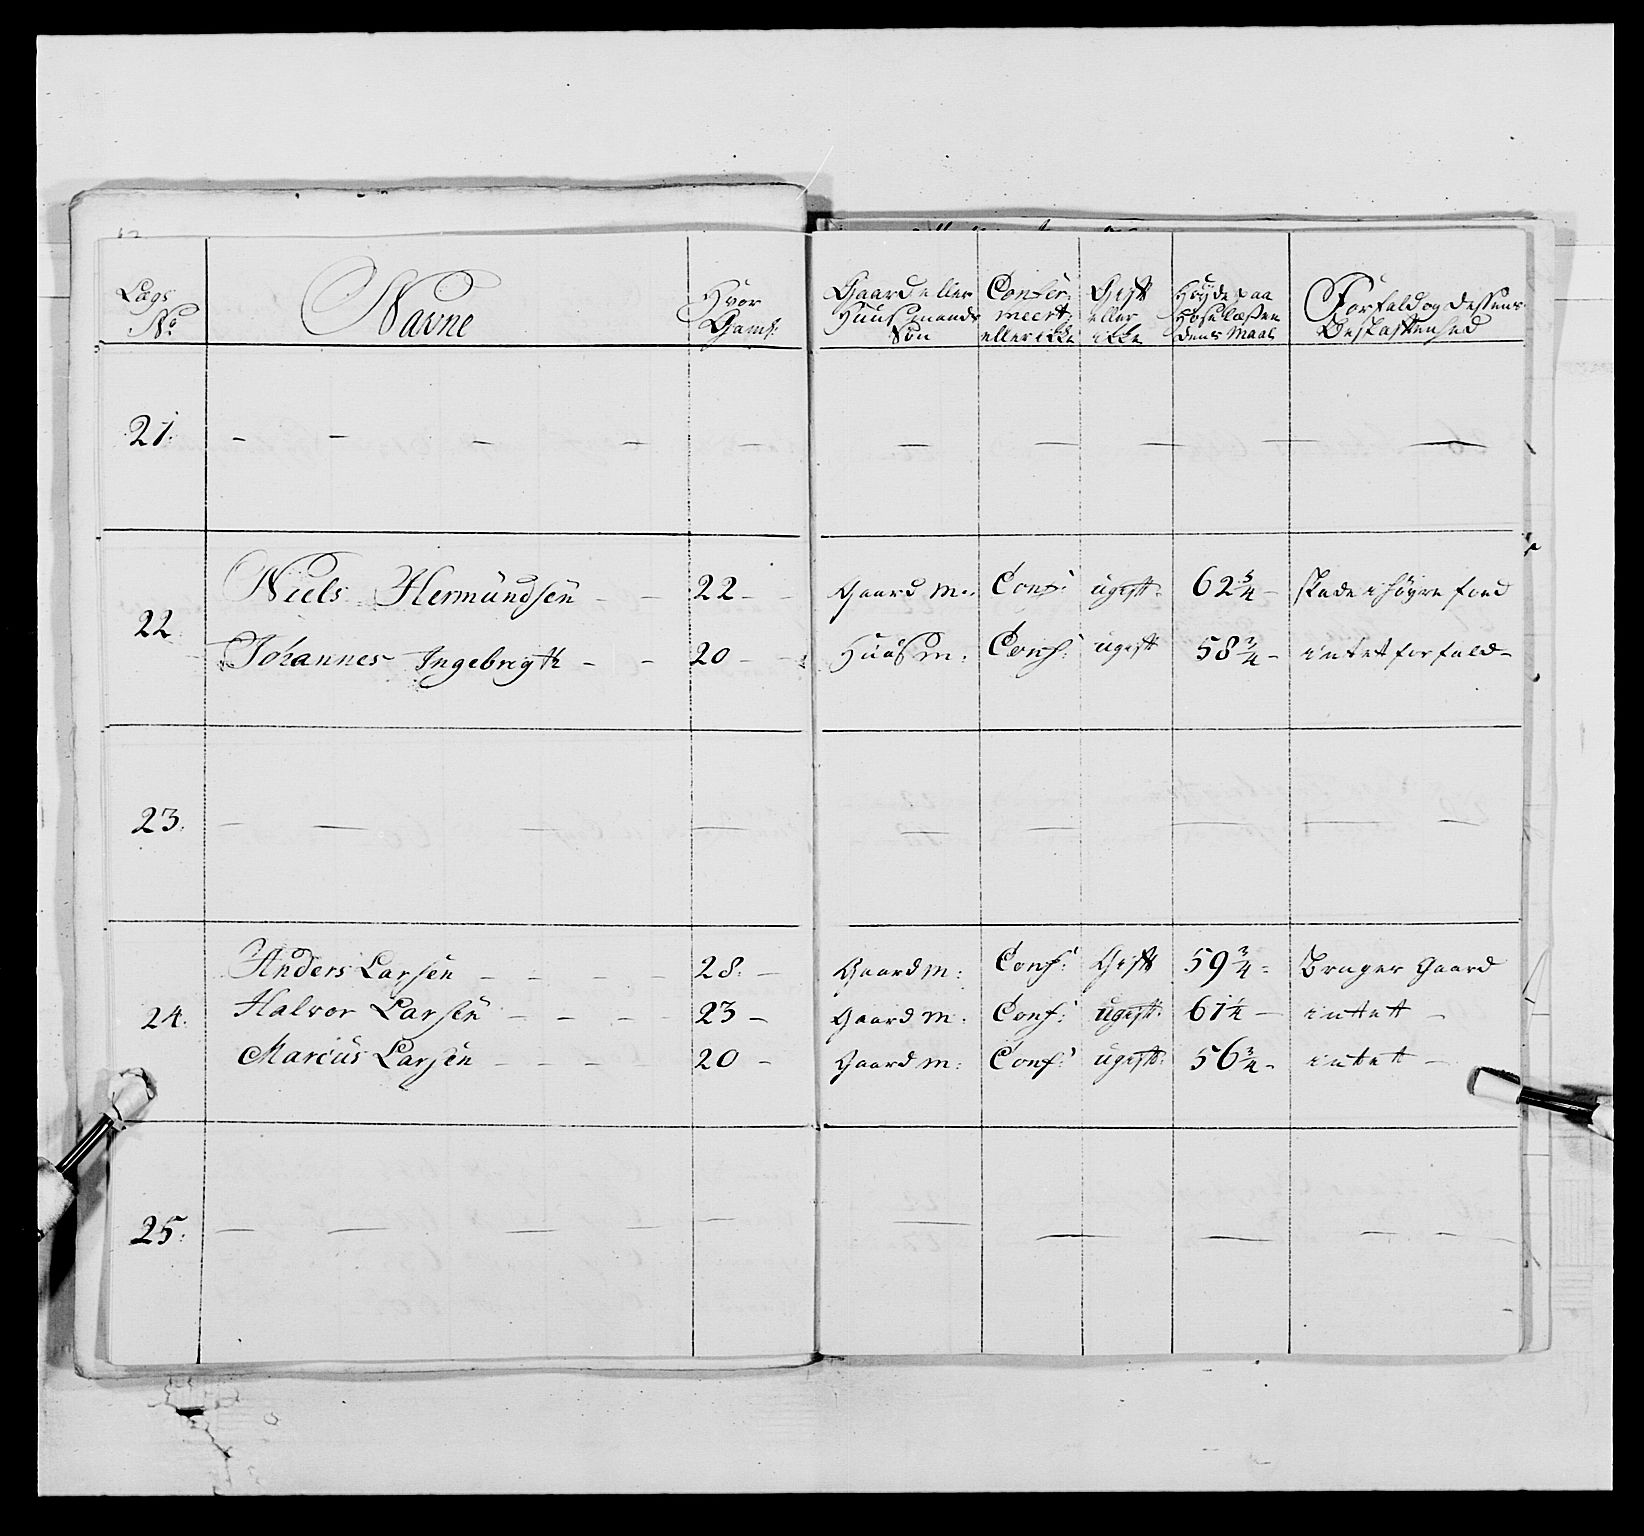 Lægs No Navne Hvor Gaml: Gaard eller Huusmands Søn Confir: meert eller ikke Gift eller ikke Høyde paa Hoselæsten Dens Maal Forfald og dessens Beskaffenhed
21. - - - - - - - - - -
22. Niels Hermundsen - - 22 - Gaard M: Conf: ugift 62 3/4 - skade i høyre foed
Johannes Ingebrigth - - 20 - Huusm: Conf: ugift 58 3/4 - intet forfald -
23. - - - - - - - - -
24. Anders Larsen - - - - 28 - Gaardm: Conf: Gift 59 3/4 - Bruger Gaard
Halvor Larsen - - - - 23 - Gaardm: Conf: ugift 61 1/4 - intett -
Marcus Larsen - - - - 20 - Gaardm: Conf: ugift 56 3/4 - intett -
25: - - - - - - - - - -